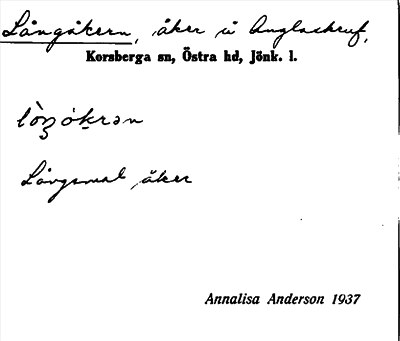 Långåkern, åker å Anglaskruf,
Korsberga sn, Östra hd, Jönk. l.
Långsmal åker
Annalisa Anderson 1937